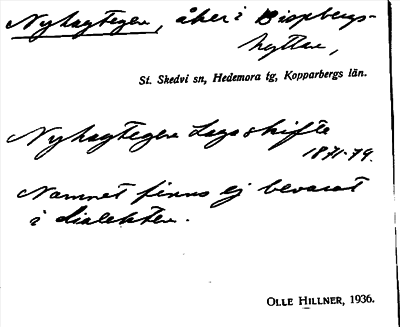 Nyhagtegen, åker i Bispbergs-
hyttan,
St. Skedvi sn, Hedemora tg, Kopparbergs län.
Nyhagtegen Laga skifte
1871-79.
Namnet finns ej bevarat
i dialekten.
OLLE HILLNER, 1936.